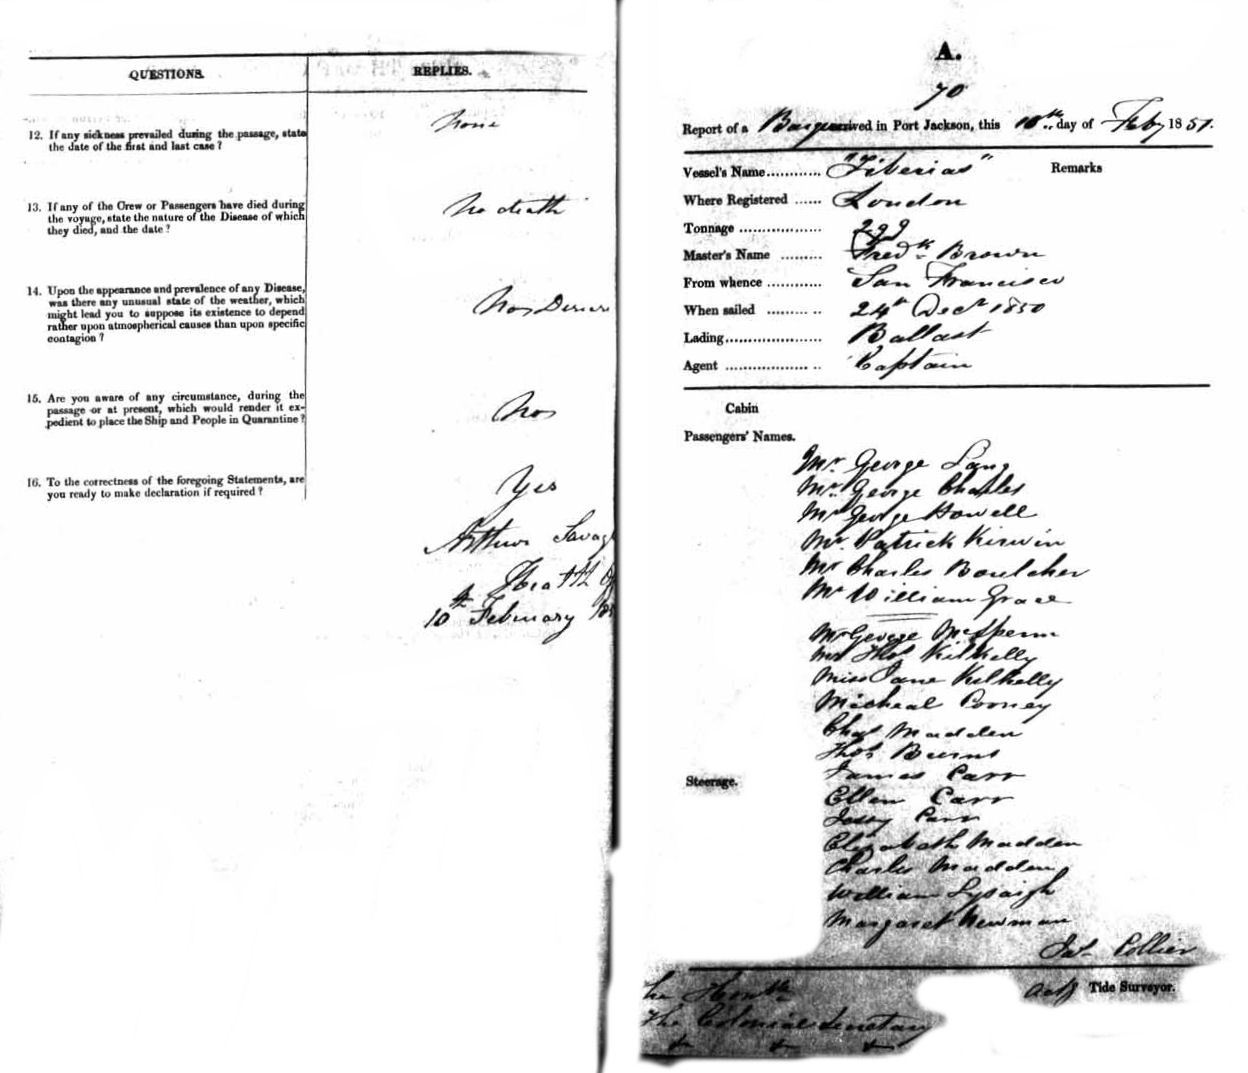 QUESTIONS.
REPLIES.
12. If any sickness prevailed during the passage, state
the date of the first and last case?
None
13. If any of the Crew or Passengers have died during
the voyage, state the nature of the Disease of which
they died, and the date?
No death
14. Upon the appearance and prevalence of any Disease,
was there any unusual state of the weather, which
might lead you to suppose its existence to depend
rather upon atmospherical causes than upon specific
contagion?
15. Are you aware of any circumstance, during the
passage or at present, which would render it ex-
pedient to place the Ship and People in Quarantine?
16. To the correctness of the foregoing Statements, are
you ready to make declaration if required?
Yes
Arthur Savag
Health Of
10th February 18
A.
70
Report of a Barque arrived in Port Jackson, this 10th day of Feby 1851.
Vessel's Name............ "Tiberias"
Remarks
Where Registered ...... London
Tonnage .................. 299
Master's Name ......... Fredk Brown
From whence ............ San Francisco
When sailed ......... .. 24th Decr 1850
Lading..................... Ballast
Agent .................. .. Captain
Cabin
Passengers' Names.
Mr. George Lang
Mr. George Charles
Mr George Howell
Mr. Patrick Kirwin
Mr Charles Boulcher
Mr William Grace
Mr George McSperin
Mr Thos Kilkelly
Miss Jane Kilkelly
Micheal Cooney
Chas Madden
Thos Burns
James Carr
Steerage.
Ellen Carr
Carr
Elizabeth Madden
Charles Madden
William Lysaigh
Margaret Newman
Jas. Collier
actg Tide Surveyor.
The Honble
The Colonial Secretary